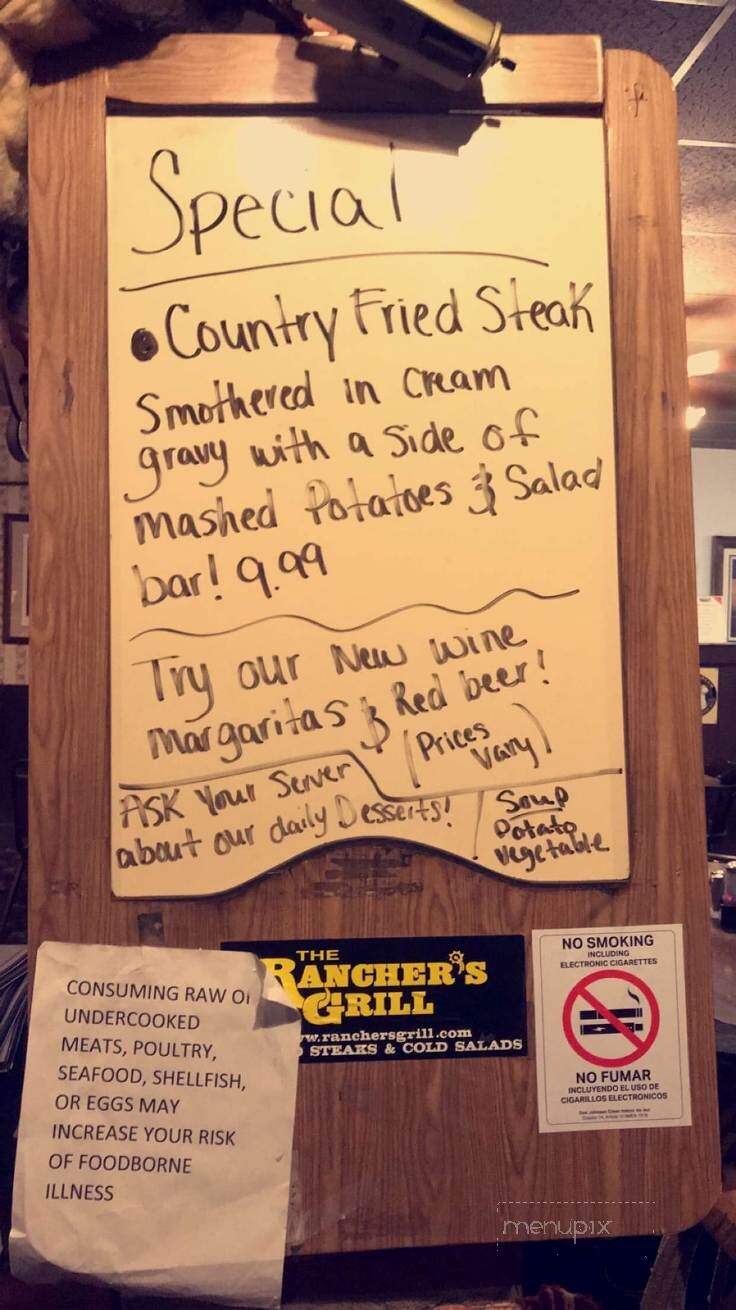 Special
• Country Fried Steak
Smothered in Cream
gravy with a side of
mashed Potatoes & Salad
bar! 9.99
Try our New wine
margaritas & Red beer!
(Prices
vary)
Ask Your Server
about our daily Desserts!
Soup
Potato
vegetable
CONSUMING RAW
UNDERCOOKED
MEATS, POULTRY,
SEAFOOD, SHELLFISH,
OR EGGS MAY
INCREASE YOUR RISK
OF FOODBORNE
ILLNESS
THE
RANCHER'S
GRILL
w.ranchersgrill.com
STEAKS & COLD SALADS
NO SMOKING
INCLUDING
ELECTRONIC CIGARETTES
NO FUMAR
INCLUYENDO EL USO DE
CIGARILLOS ELECTRONICOS
menupix